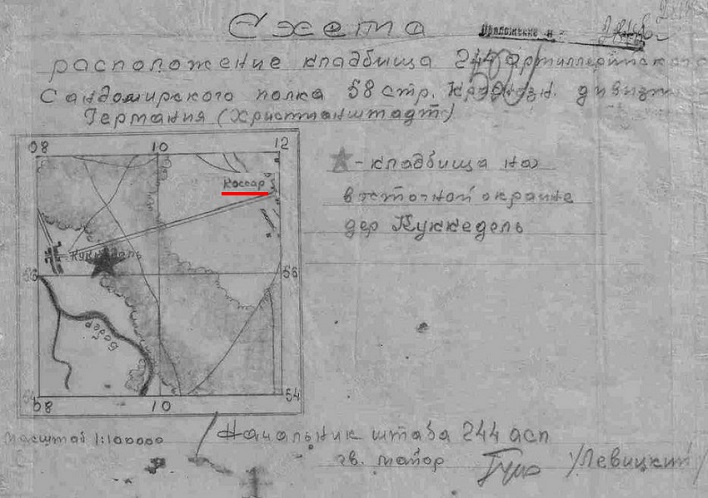 Схема
Приложение н-
расположение кладбища 244 артиллерийского
Сандомирского полка 58 стр. Краснозн. дивизии
Германия (Христианштадт)
08 10 12
Коссар
Куккедель
56 56
бобер
54 54
08 10
★ - кладбища на
восточной окраине
дер Куккедель
Масштаб 1:100000
Начальник штаба 244 асп
гв. майор /Левицкий/